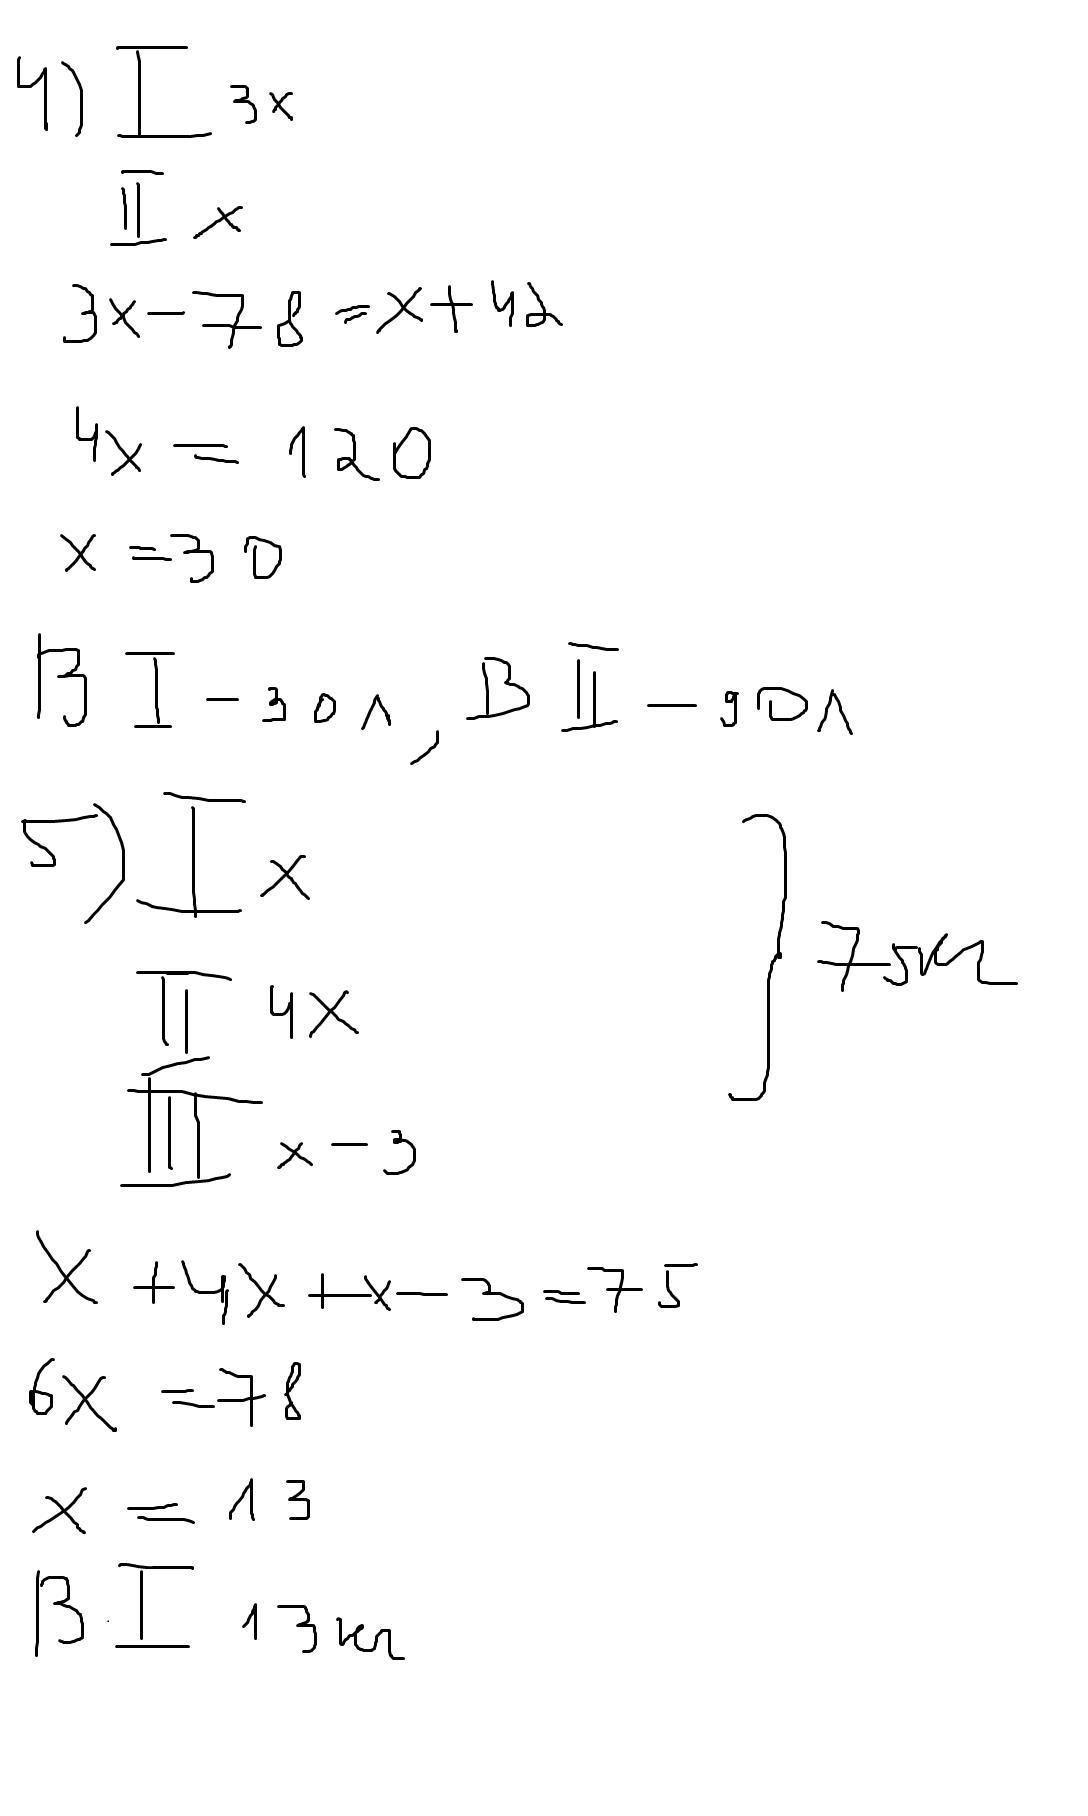 4) I 3x
II x
3x-78=x+42
4x=120
x=30
В I - 30л, В II - 90л
5) I x
75кг
II 4x
III x-3
x+4x+x-3=75
6x=78
x=13
В I 13кг